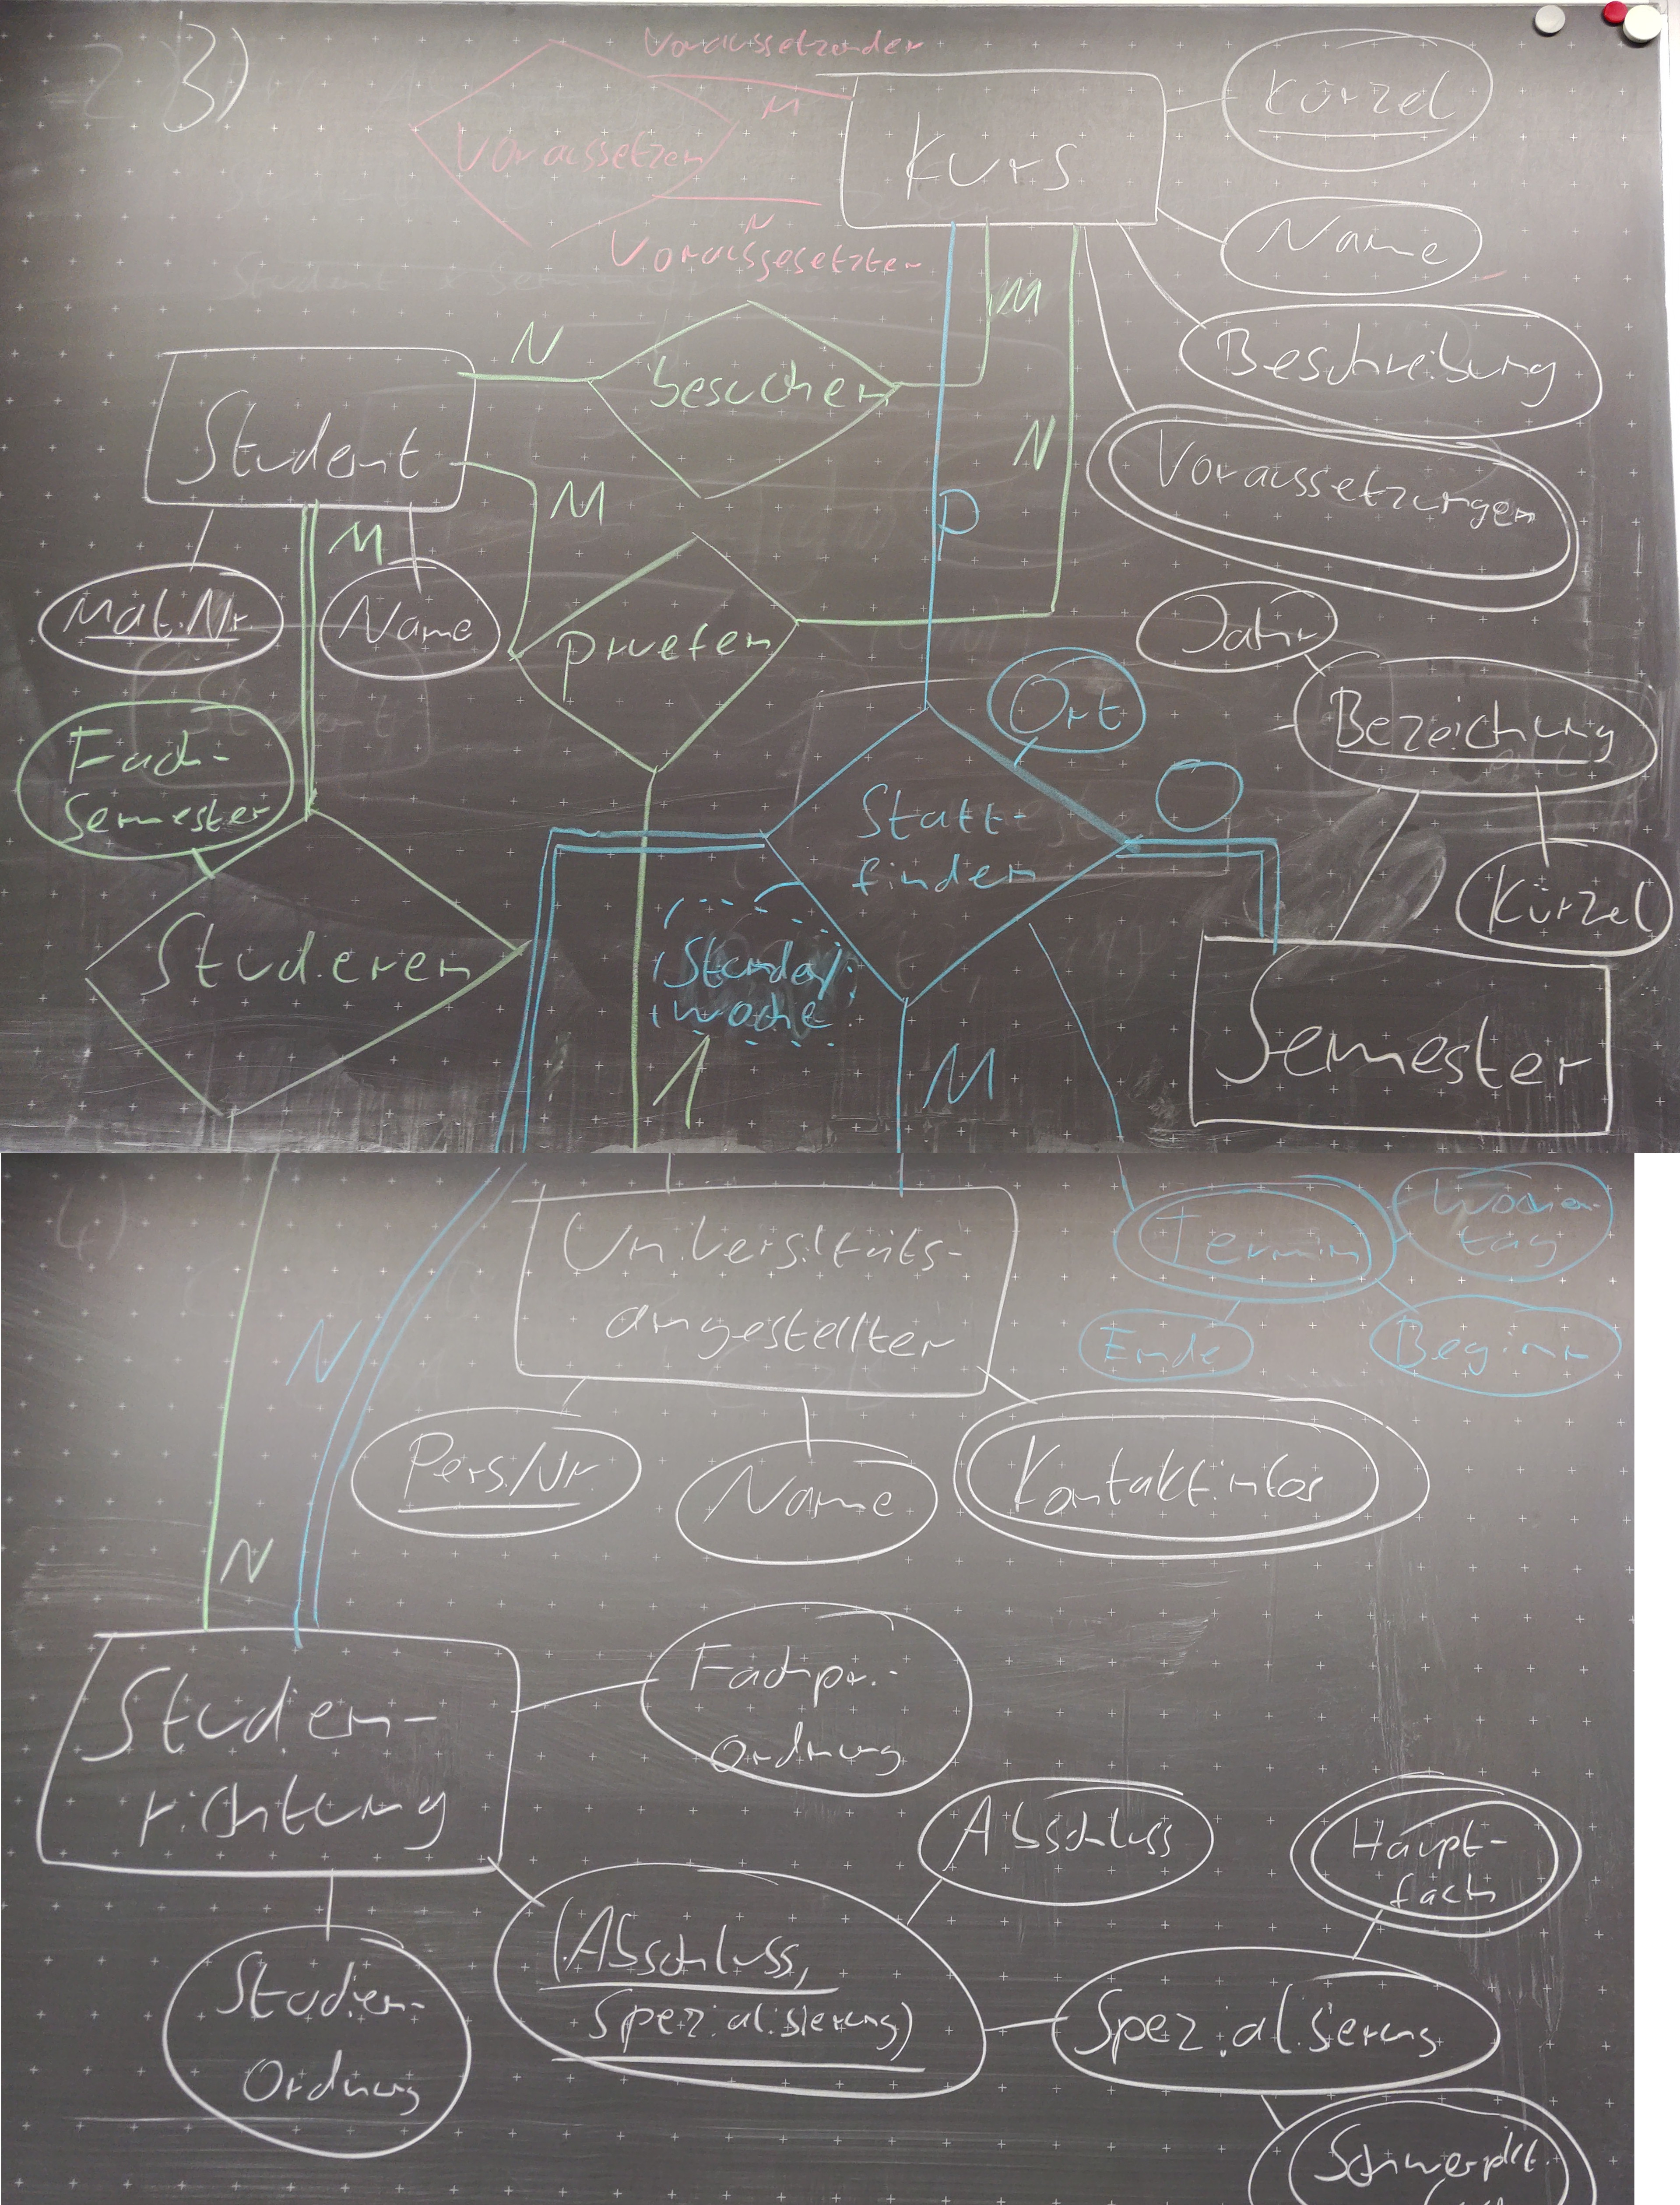 3)
Voraussetzender
M
Voraussetzen
N
Voraussgesetzter
Kurs
Kürzel
Name
Beschreibung
Voraussetzungen
N
besuchen
M
Student
M
N
P
M
Mat.Nr.
Name
pruefen
Fach-
semester
Studieren
Ort
Statt-
finden
O
Stunden/
woche
1
M
Jahr
Bezeichnung
Kürzel
Semester
4)
Universitäts-
angestellter
Termin
Wochen-
tag
Ende
Beginn
N
Pers.Nr.
Name
Kontaktinfos
N
Studien-
richtung
Fachpr.-
Ordnung
Abschluss
Haupt-
fach
(Abschluss,
Spezialisierung)
Spezialisierung
Studien-
Ordnung
Schwerpkt.